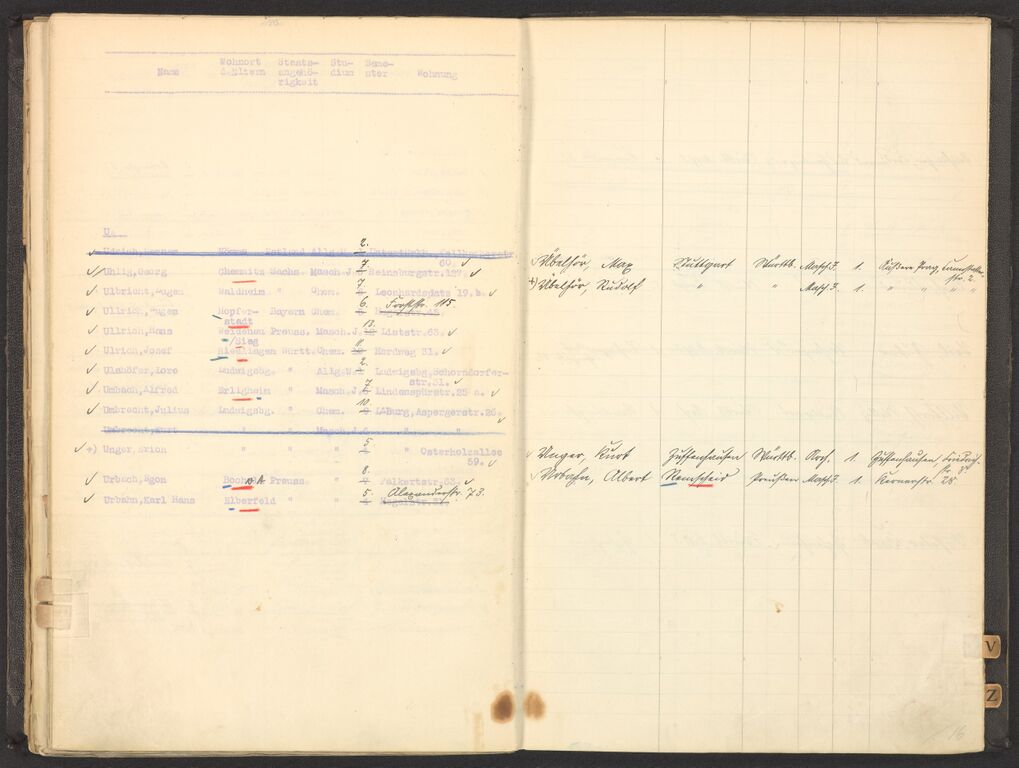 Name Wohnort d.Eltern Staats-angehö-rigkeit Stu-dium Seme-ster Wohnung
U.
2.
60
Uhlig, Georg Chemnitz Sachs. Masch.J. 7. Reinsburgstr.127.
Ulbricht, Eugen Waldheim " Chem. 7. Leonhardsplatz 19.b.
Ullrich, Eugen Hopfer- Bayern Chem. 6. Forststr. 115
stadt
Ullrich, Hans Weidenau Preuss. Masch.J. 13. Liststr.63.
/Sieg
Ulrich, Josef Riedlingen Württ. Chem. 11. Nordweg 31.
Ulshöfer, Lore Ludwigsbg. " Allg.W. 2. Ludwigsbg, Schorndorfer-
str.31.
Umbach, Alfred Erligheim " Masch.J. 7. Lindenspürstr.25 a.
Umbrecht, Julius Ludwigsbg. " Chem. 10. L'Burg, Aspergerstr.26.
Umbrecht, Kurt " " Masch.J. " "
+) Unger, Erich " " " 5. " Osterholzallee
59.
Urbach, Egon Preuss. " 8. Falkertstr.63.
Urbahn, Karl Hans Elberfeld " " 5. Alexanderstr. 73.
Übelhör, Max Stuttgart Württb. Masch.J. 1.
+) Übelhör, Rudolf " " Masch.J. 1. " " " "
Unger, Kurt Zuffenhausen Württb. 1. Zuffenhausen,
Urbahn, Albert Remscheid Preußen Masch.J. 1. Kernerstr. 25
V
Z
16